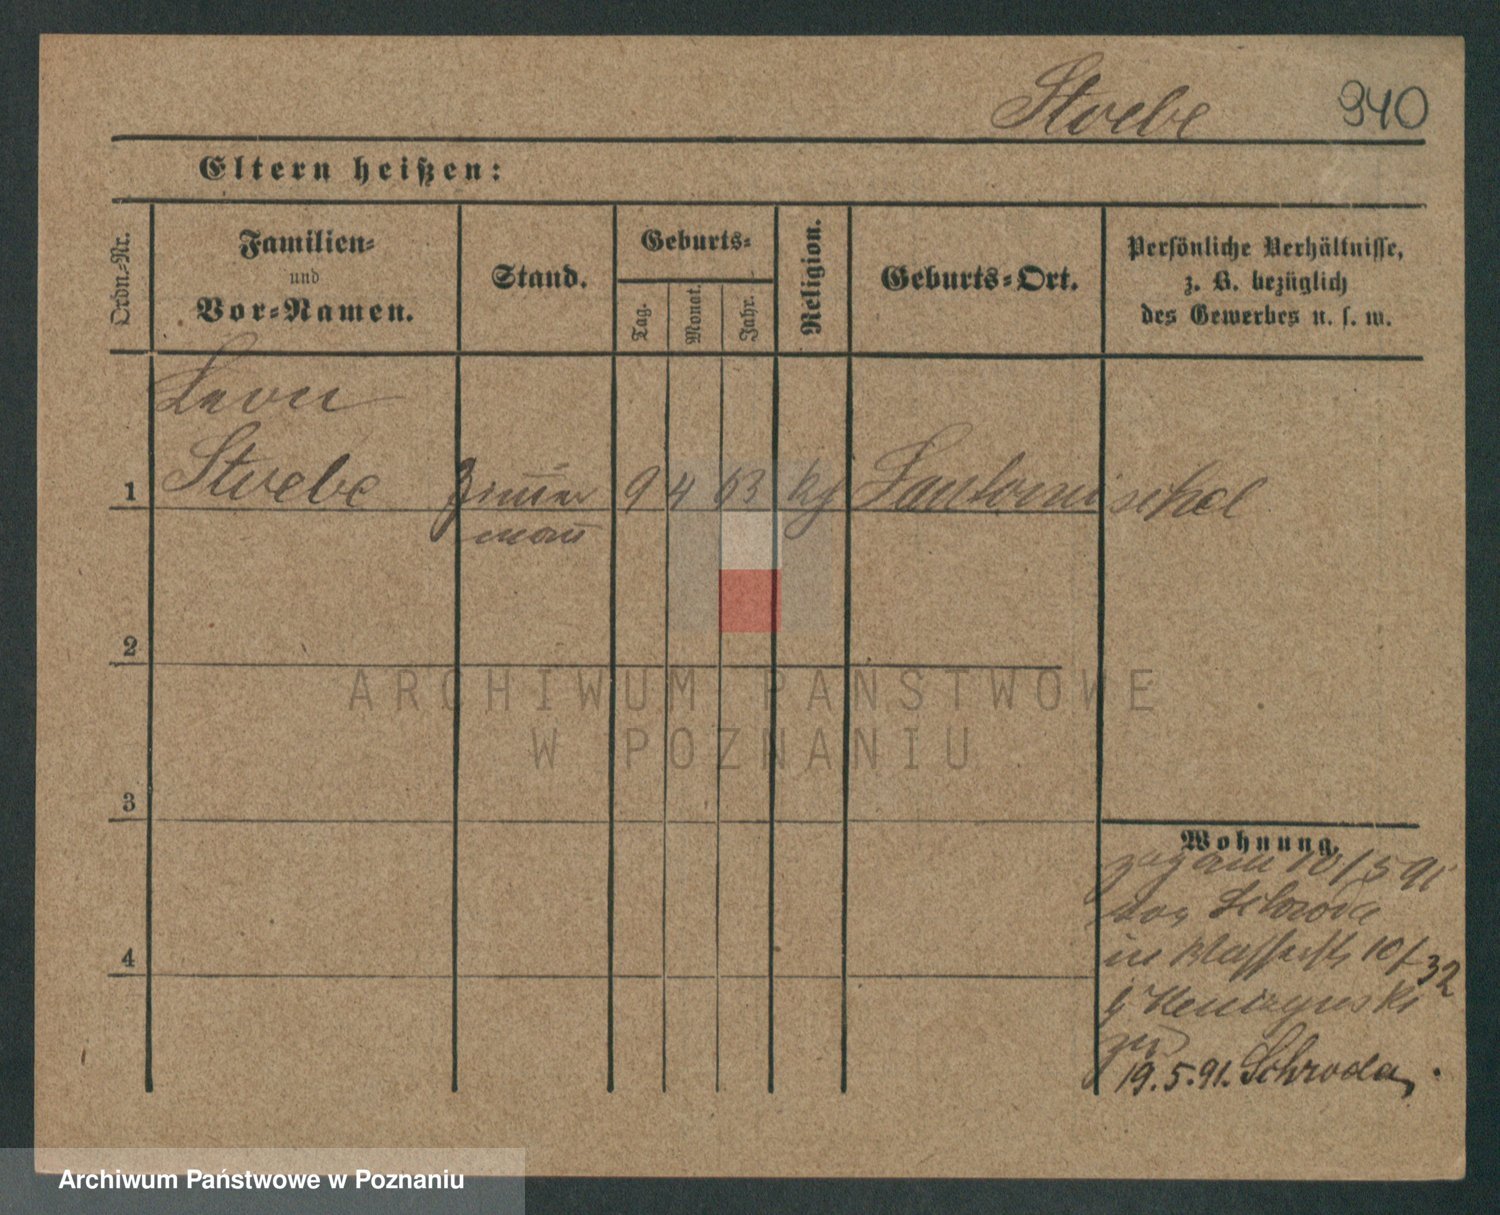 Stoebe 940
Eltern heißen:
Ordn.-Nr.
Familien-
und
Vor-Namen.
Stand.
Geburts-
Tag.
Monat.
Jahr.
Religion.
Geburts-Ort.
Persönliche Verhältnisse,
z. B. bezüglich
des Gewerbes u. s. w.
Leon
1 Stoebe Zimmer 9 4 63 kg
mann
2
3
4
Wohnung.
10/5 91
von Schroda
in 10/
32
zu
19.5.91. Schroda.
ARCHIWUM PAŃSTWOWE
W POZNANIU
Archiwum Państwowe w Poznaniu